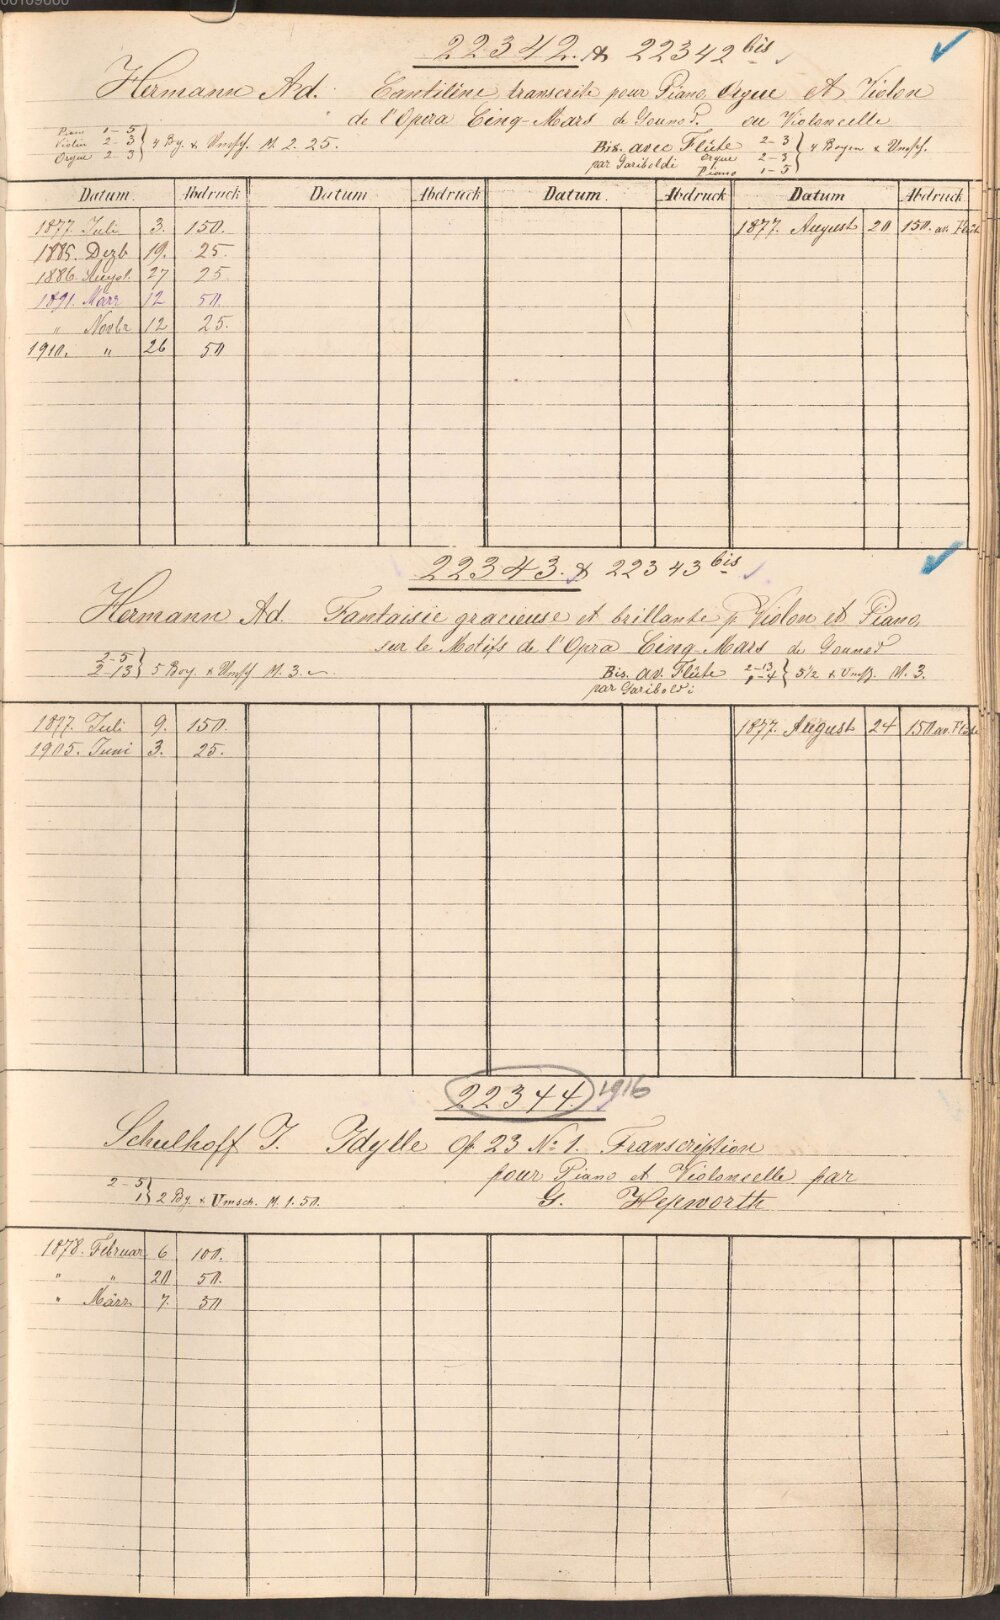 22342. & 22342 bis
Hermann Ad. Cantilène transcrite pour Piano, Orgue et Violon
de l'Opera Cinq-Mars de Gounod. ou Violoncelle
Piano 1-5
Violin 2-3
Orgue 2-3
4 Bg. & Umsch. M. 2.25.
Bis. avec Flûte 2-3
par Gariboldi Orgue 2-3
Piano 1-5
4 Bogen & Umsch.
Datum Abdruck Datum Abdruck Datum Abdruck Datum Abdruck
1877. Juli 3. 150. 1877. August 20 150. av. Flûte
1885. Dezb 19. 25.
1886. Augst. 27 25
1891. März 12 50.
" Novbr 12 25.
1910. " 26 50
22343. & 22343 bis
Hermann Ad. Fantaisie gracieuse et brillante p. Violon et Piano,
sur le Motifs de l'Opra Cinq Mars de Gounod
2-5
2-13
5 Bog. & Umsch M. 3.
Bis. av. Flûte 2-13
par Gariboldi
5 1/2 & Umsch. M. 3.
1877. Juli 9. 150. 1877. August 24 150. av. Flûte
1905. Juni 3. 25.
22344. 1916
Schulhoff J. Idylle Op. 23 No 1. Transcription
pour Piano et Violoncelle par
2-5
1
2 Bg. & Umsch. M. 1.50.
G. Hepworth
1878. Februar 6 100.
" " 20 50.
" März 7. 50